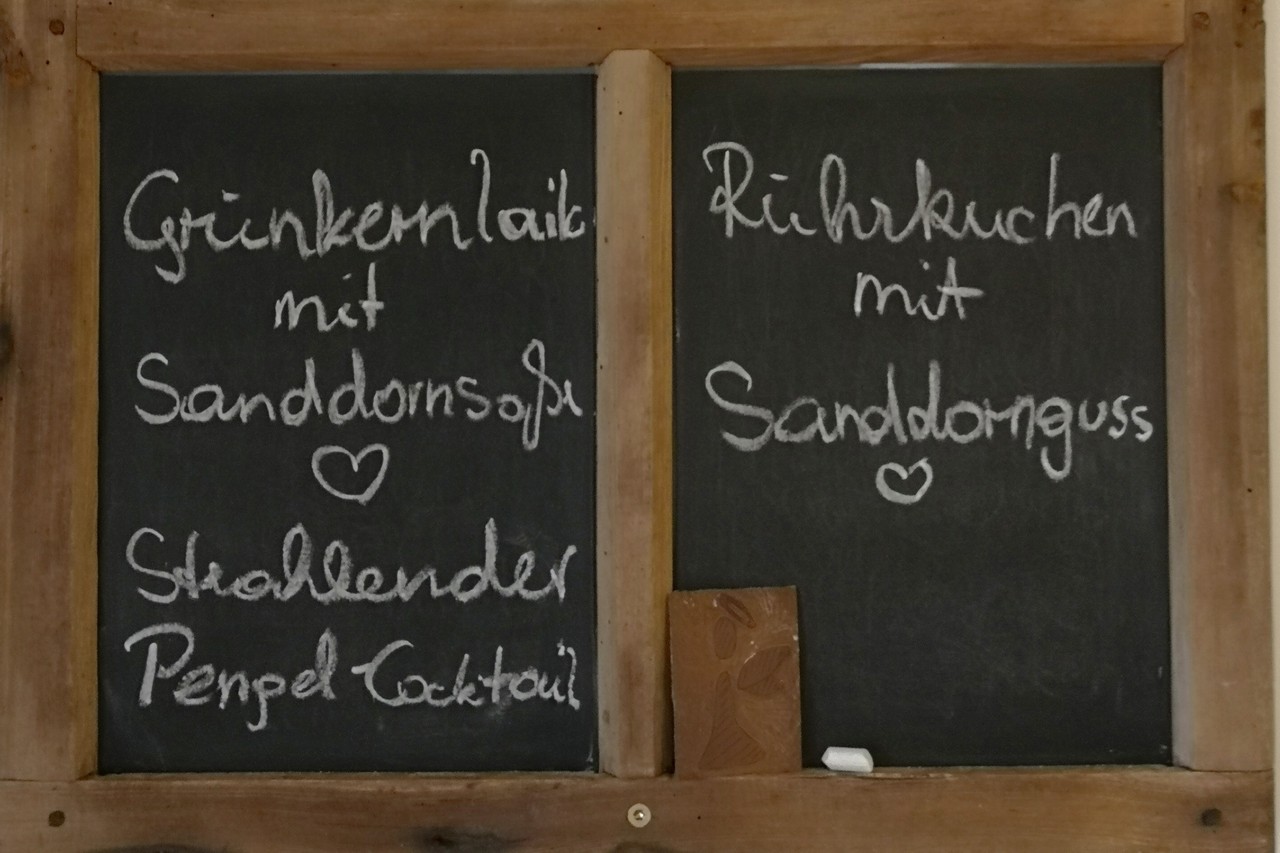 Grünkernlaib
mit
Sanddornsoße
Strahlender
Pengel Cocktail
Rührkuchen
mit
Sanddornguss